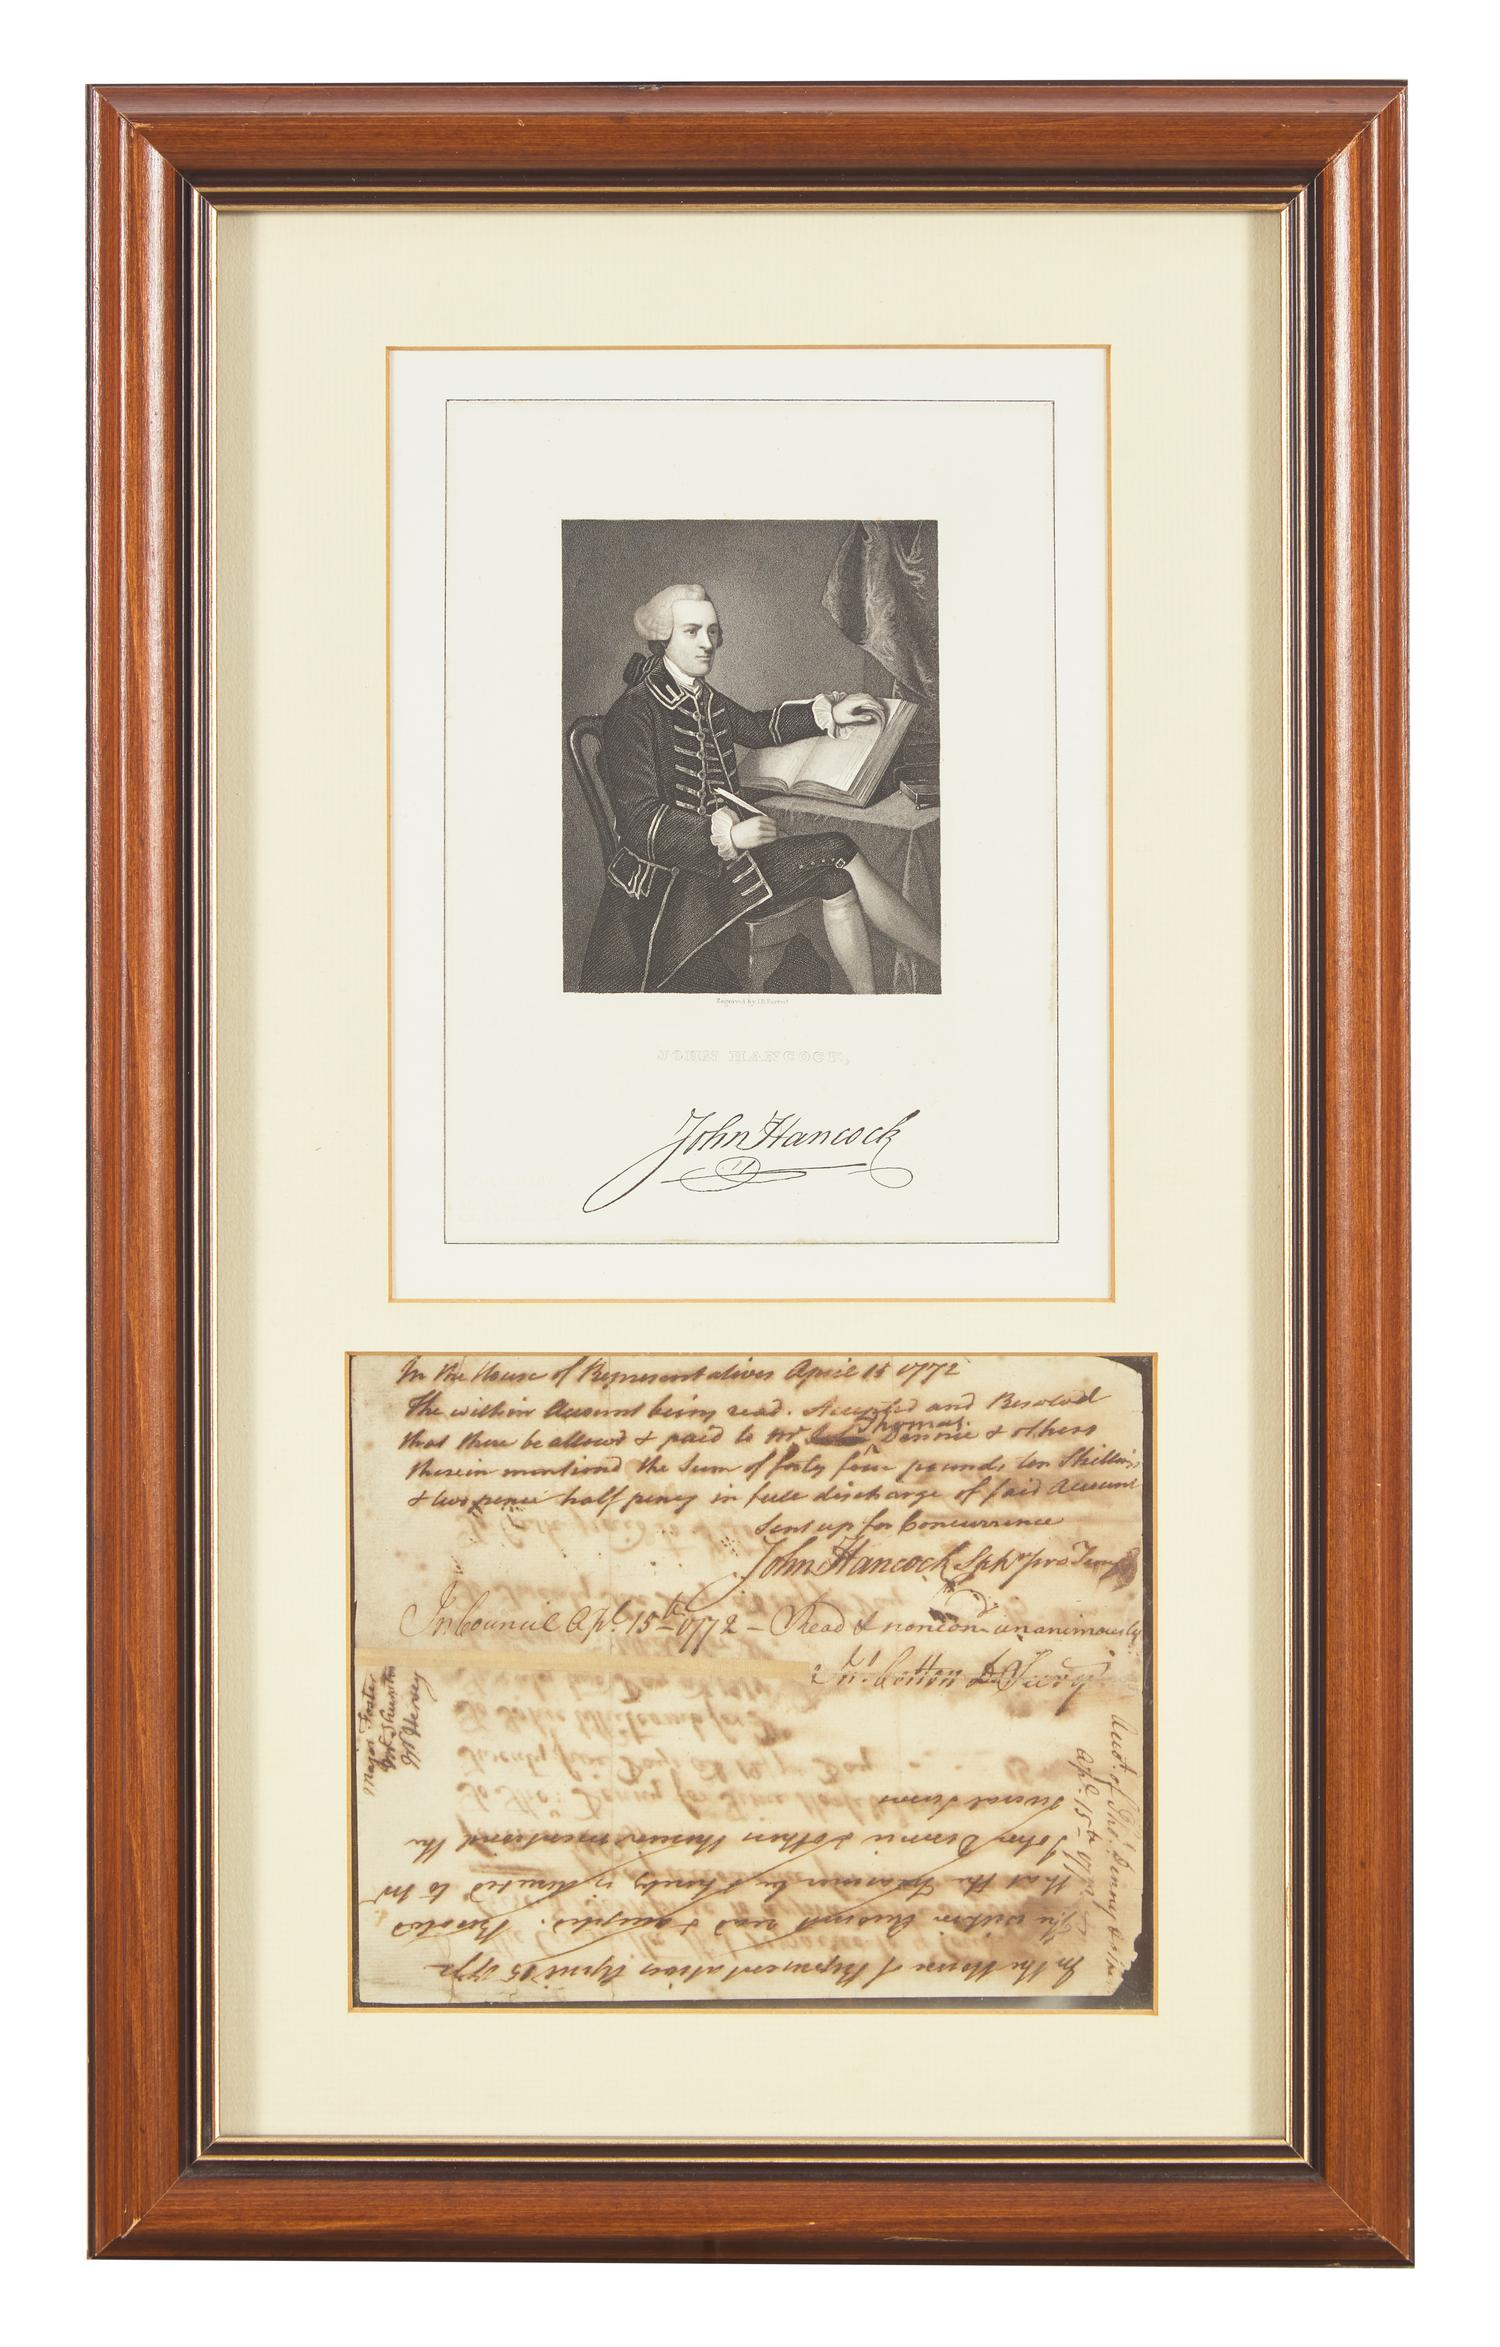 Engraved by I.B. Forrest
JOHN HANCOCK,
John Hancock
In the House of Representatives April 15 1772
The within Account being read. Accepted and Resolved
that there be allowed & paid to Mr Thomas Dennie & others
therein mentiond the Sum of forty four pounds, ten Shillings
& two pence half peny in full discharge of said Account
Sent up for Concurrence
John Hancock Spkr pro Temp
In Council Apl. 15th 1772 – Read & noncond unanimously
Jno. Cotton D. Secry
Major Foster
Mr Thurston
Mr Hersey
Acct. of Tho. Denny & others
Apl. 15th 1772
several sums
John Dennie & others therein mentioned the
that the Treasurer be & hereby is directed to Mr
The within Account read & accepted. Resolved
In the House of Representatives April 15 1772